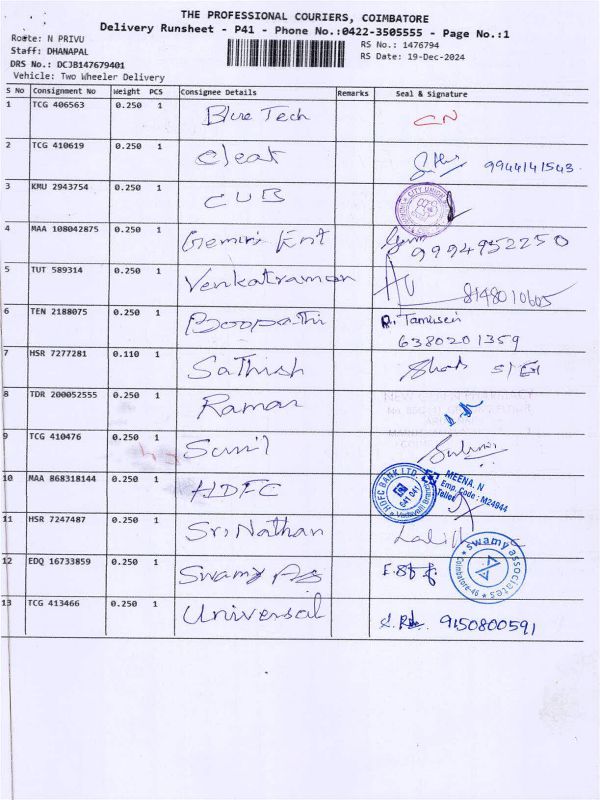 THE PROFESSIONAL COURIERS, COIMBATORE
Delivery Runsheet - P41 - Phone No.:0422-3505555 - Page No.:1
Route: N PRIVU
RS No.: 1476794
Staff: DHANAPAL
RS Date: 19-Dec-2024
DRS No.: DCJB147679401
Vehicle: Two Wheeler Delivery
S No Consignment No Weight PCS Consignee Details Remarks Seal & Signature
1 TCG 406563 0.250 1 Blue Tech CN
2 TCG 410619 0.250 1 Cleat 9944141543
3 KMU 2943754 0.250 1 CUB CITY UNION
4 MAA 108042875 0.250 1 Gemini Ent 9994952250
5 TUT 589314 0.250 1 Venkatraman 8148010605
6 TEN 2188075 0.250 1 Boopathi
6380201359
7 HSR 7277281 0.110 1 Sathish
8 TDR 200052555 0.250 1 Raman
9 TCG 410476 0.250 1 Sunil
10 MAA 868318144 0.250 1 HDFC HDFC BANK LTD. 641 041 Vadavalli Branch MEENA. N
Emp. Code : M24944
Teller
11 HSR 7247487 0.250 1 Sri Nathan Lali
12 EDQ 16733859 0.250 1 Swamy As swamy associates Coimbatore-46
13 TCG 413466 0.250 1 Universal 9150800591